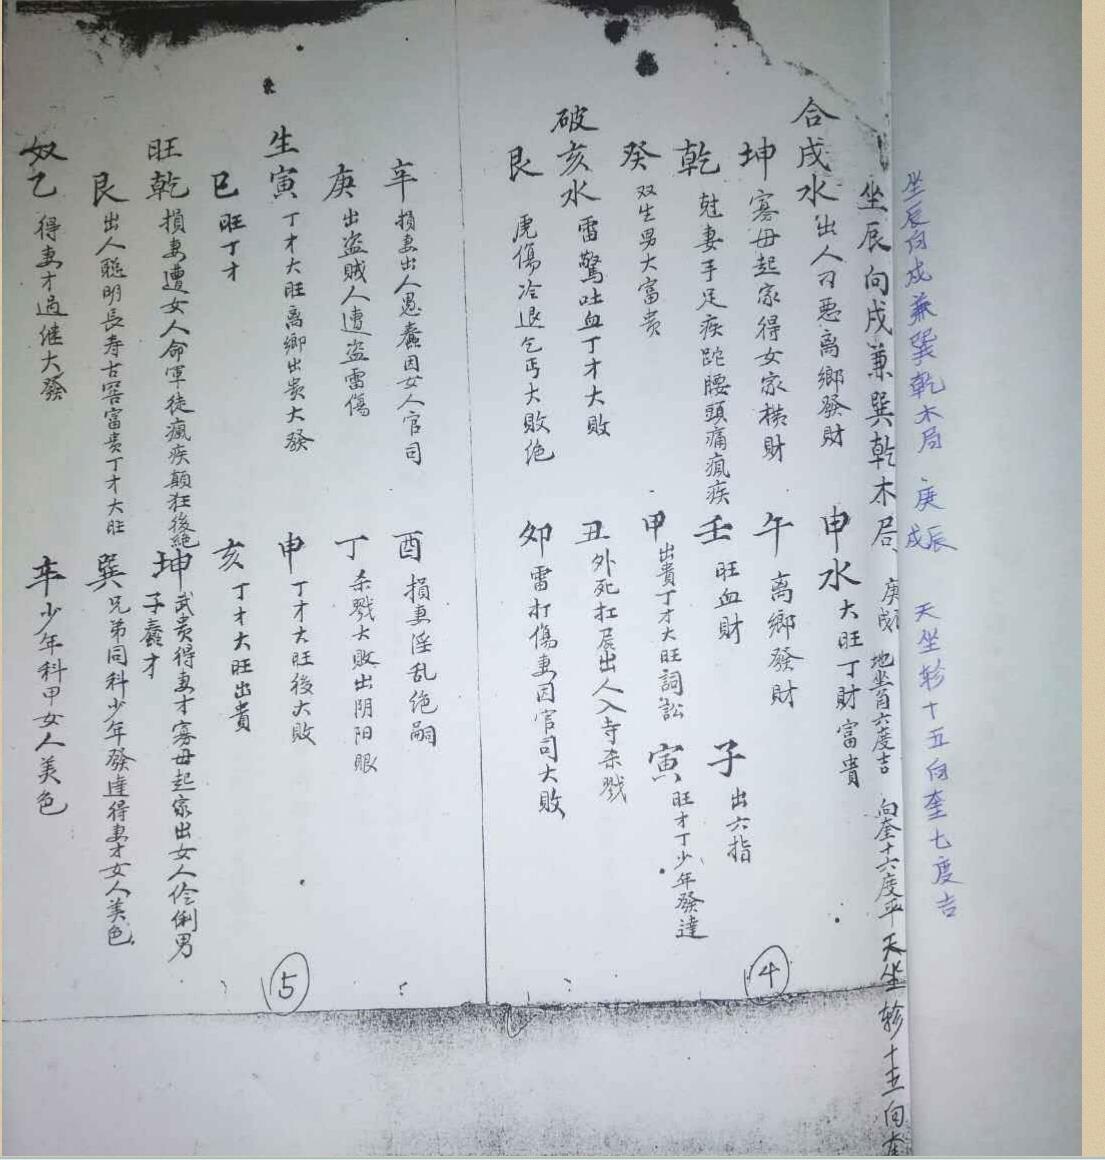 坐辰向戌兼巽乾木局 庚辰 戌 天坐軫十五向奎七度吉
坐辰向戌兼巽乾木局 庚戌 地坐角六度吉 向奎十六度平 天坐軫十五向奎
合戌水 出人刁惡离鄉發財
申水 大旺丁財富貴
坤 寡母起家得女家横財
午 离鄉發財
乾 尅妻手足疾跎腰頭痛瘋疾
壬 旺血財
子 出六指
癸 双生男大富贵
甲 出貴丁才大旺詞訟
寅 旺才丁少年發達
破亥水 雷驚吐血丁才大敗
丑 外死扛屍出人入寺杀戮
艮 虎傷冷退乞丐大敗绝
卯 雷打傷妻因官司大敗
④
辛 損妻出人愚蠢因女人官司
酉 損妻淫乱绝嗣
庚 出盗賊人遭盗雷傷
丁 杀戮大敗出阴阳眼
生寅 丁才大旺离鄉出贵大發
申 丁才大旺後大敗
巳 旺丁才
亥 丁才大旺出貴
旺乾 損妻遭女人命軍徒瘋疾顛狂後絶
坤 武贵得妻才寡母起家出女人伶俐男
子蠢才
艮 出人聰明長寿古窖富贵丁才大旺
巽 兄弟同科少年發達得妻才女人美色
奴乙 得妻才過继大發
辛 少年科甲女人美色
⑤